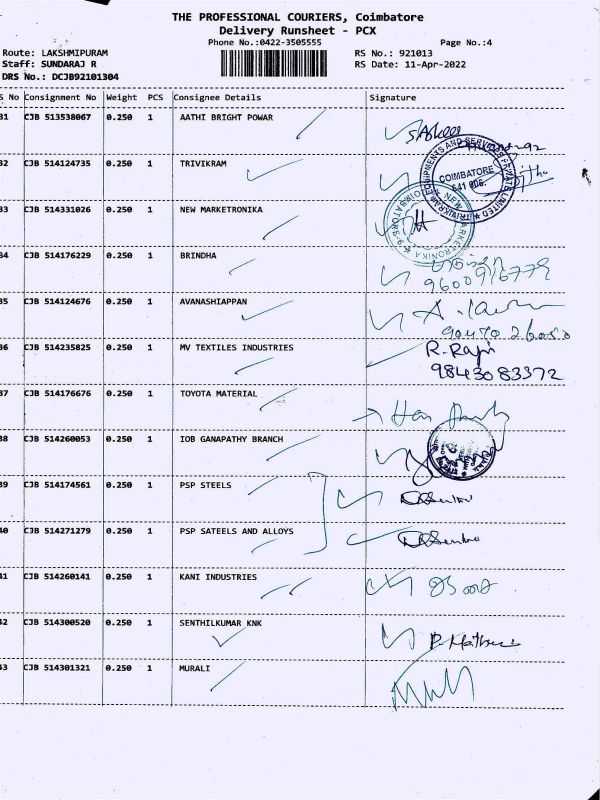 THE PROFESSIONAL COURIERS, Coimbatore
Delivery Runsheet - PCX
Phone No.:0422-3505555 Page No.:4
Route: LAKSHMIPURAM RS No.: 921013
Staff: SUNDARAJ R RS Date: 11-Apr-2022
DRS No.: DCJB92101304
S No Consignment No Weight PCS Consignee Details Signature
31 CJB 513538067 0.250 1 AATHI BRIGHT POWAR
32 CJB 514124735 0.250 1 TRIVIKRAM
COIMBATORE
641 006.
33 CJB 514331026 0.250 1 NEW MARKETRONIKA
34 CJB 514176229 0.250 1 BRINDHA
9600916779
35 CJB 514124676 0.250 1 AVANASHIAPPAN
36 CJB 514235825 0.250 1 MV TEXTILES INDUSTRIES R. Raji
9843083372
37 CJB 514176676 0.250 1 TOYOTA MATERIAL
38 CJB 514260053 0.250 1 IOB GANAPATHY BRANCH
39 CJB 514174561 0.250 1 PSP STEELS
40 CJB 514271279 0.250 1 PSP SATEELS AND ALLOYS
41 CJB 514260141 0.250 1 KANI INDUSTRIES
42 CJB 514300520 0.250 1 SENTHILKUMAR KNK
43 CJB 514301321 0.250 1 MURALI